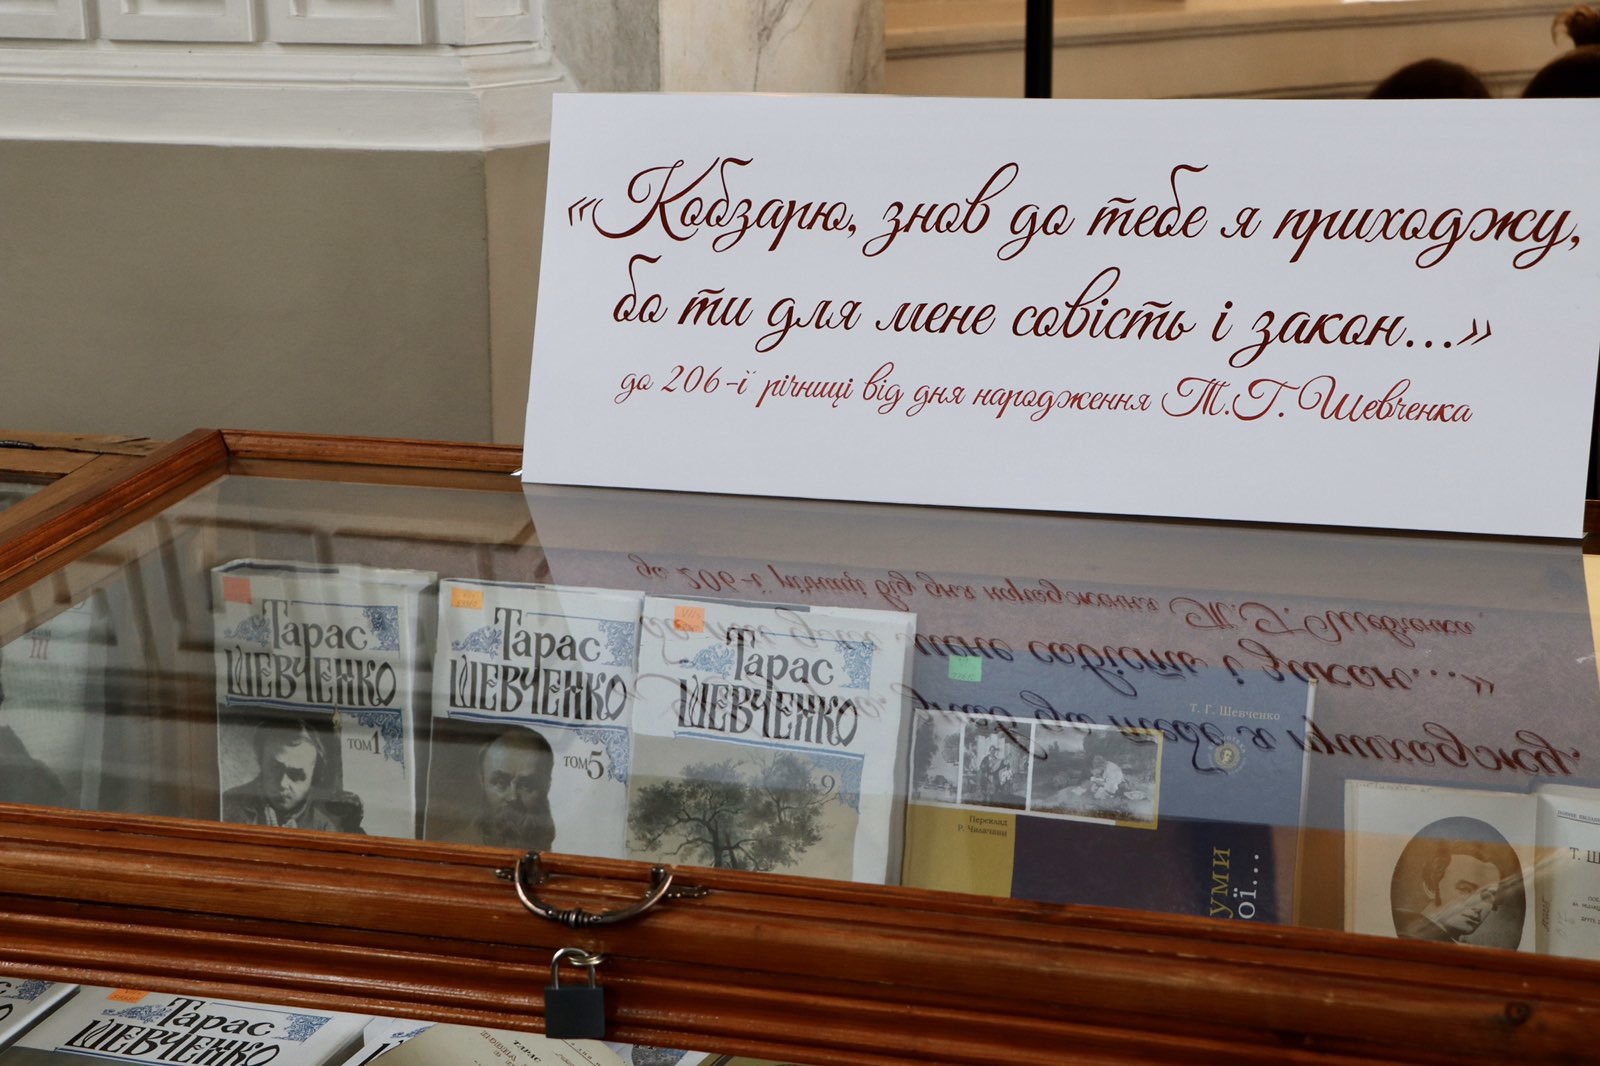 «Кобзарю, знов до тебе я приходжу,
бо ти для мене совість і закон...»
до 206-ї річниці від дня народження Т.Г. Шевченка
том
III
Тарас
Шевченко
том 1
Тарас
Шевченко
том 5
Тарас
Шевченко
9
Т. Г. Шевченко
Переклад
Р. Чилачави
уми
ої...
Т. Ш
Тарас
Шевченко
Тарас